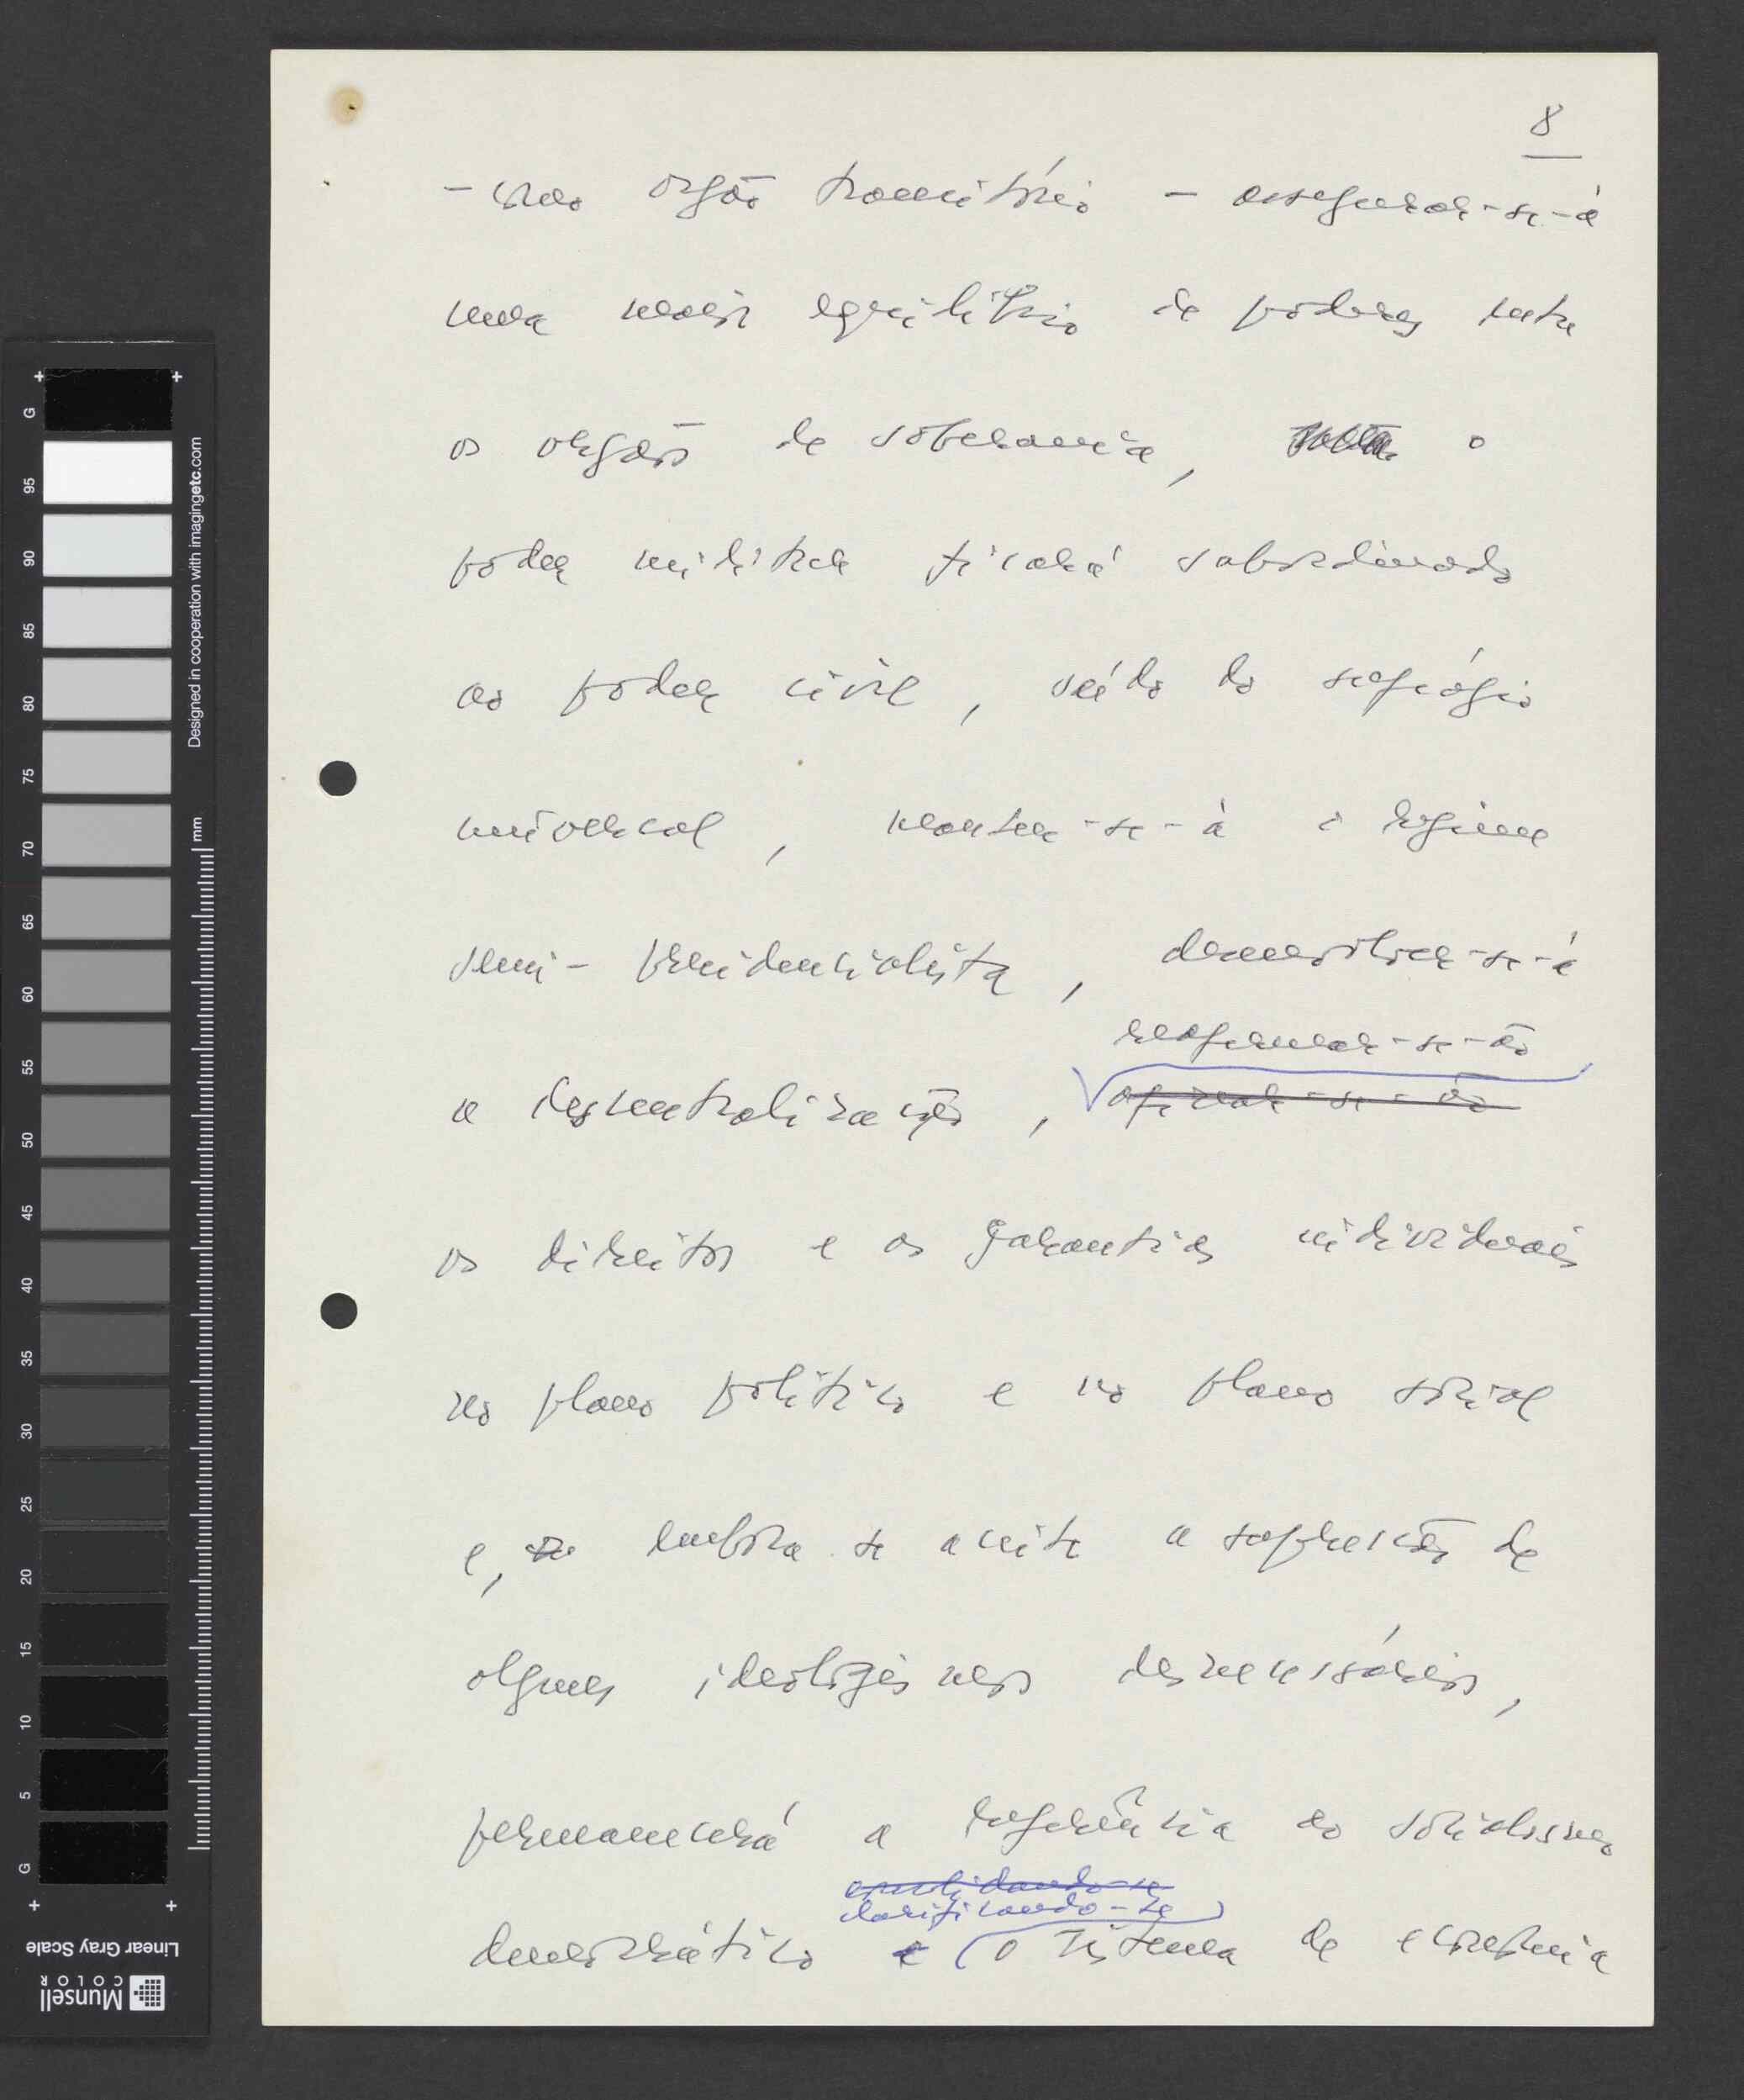 8
- como orgão transitório - assegurar-se-á
um maior equilíbrio de poderes entre
os orgãos de soberania, o
poder militar ficará subordinado
ao poder civil, saído do sufrágio
universal, manter-se-á o regime
semi-presidencialista, desenvolver-se-á
reafirmar-se-ão
a descentralização,
os direitos e as garantias individuais
no plano político e no plano social
e, embora se aceite a supressão de
alguns ideologismos desnecessários,
permanecerá a referência ao socialismo
consolidando-se
clarificando-se
democrático e o sistema de economia
G 95 90 85 80 75 70 65 60 55 50 45 40 35 30 25 20 15 10 5 G
Designed in cooperation with imagingetc.com
mm
Linear Gray Scale
Munsell
COLOR